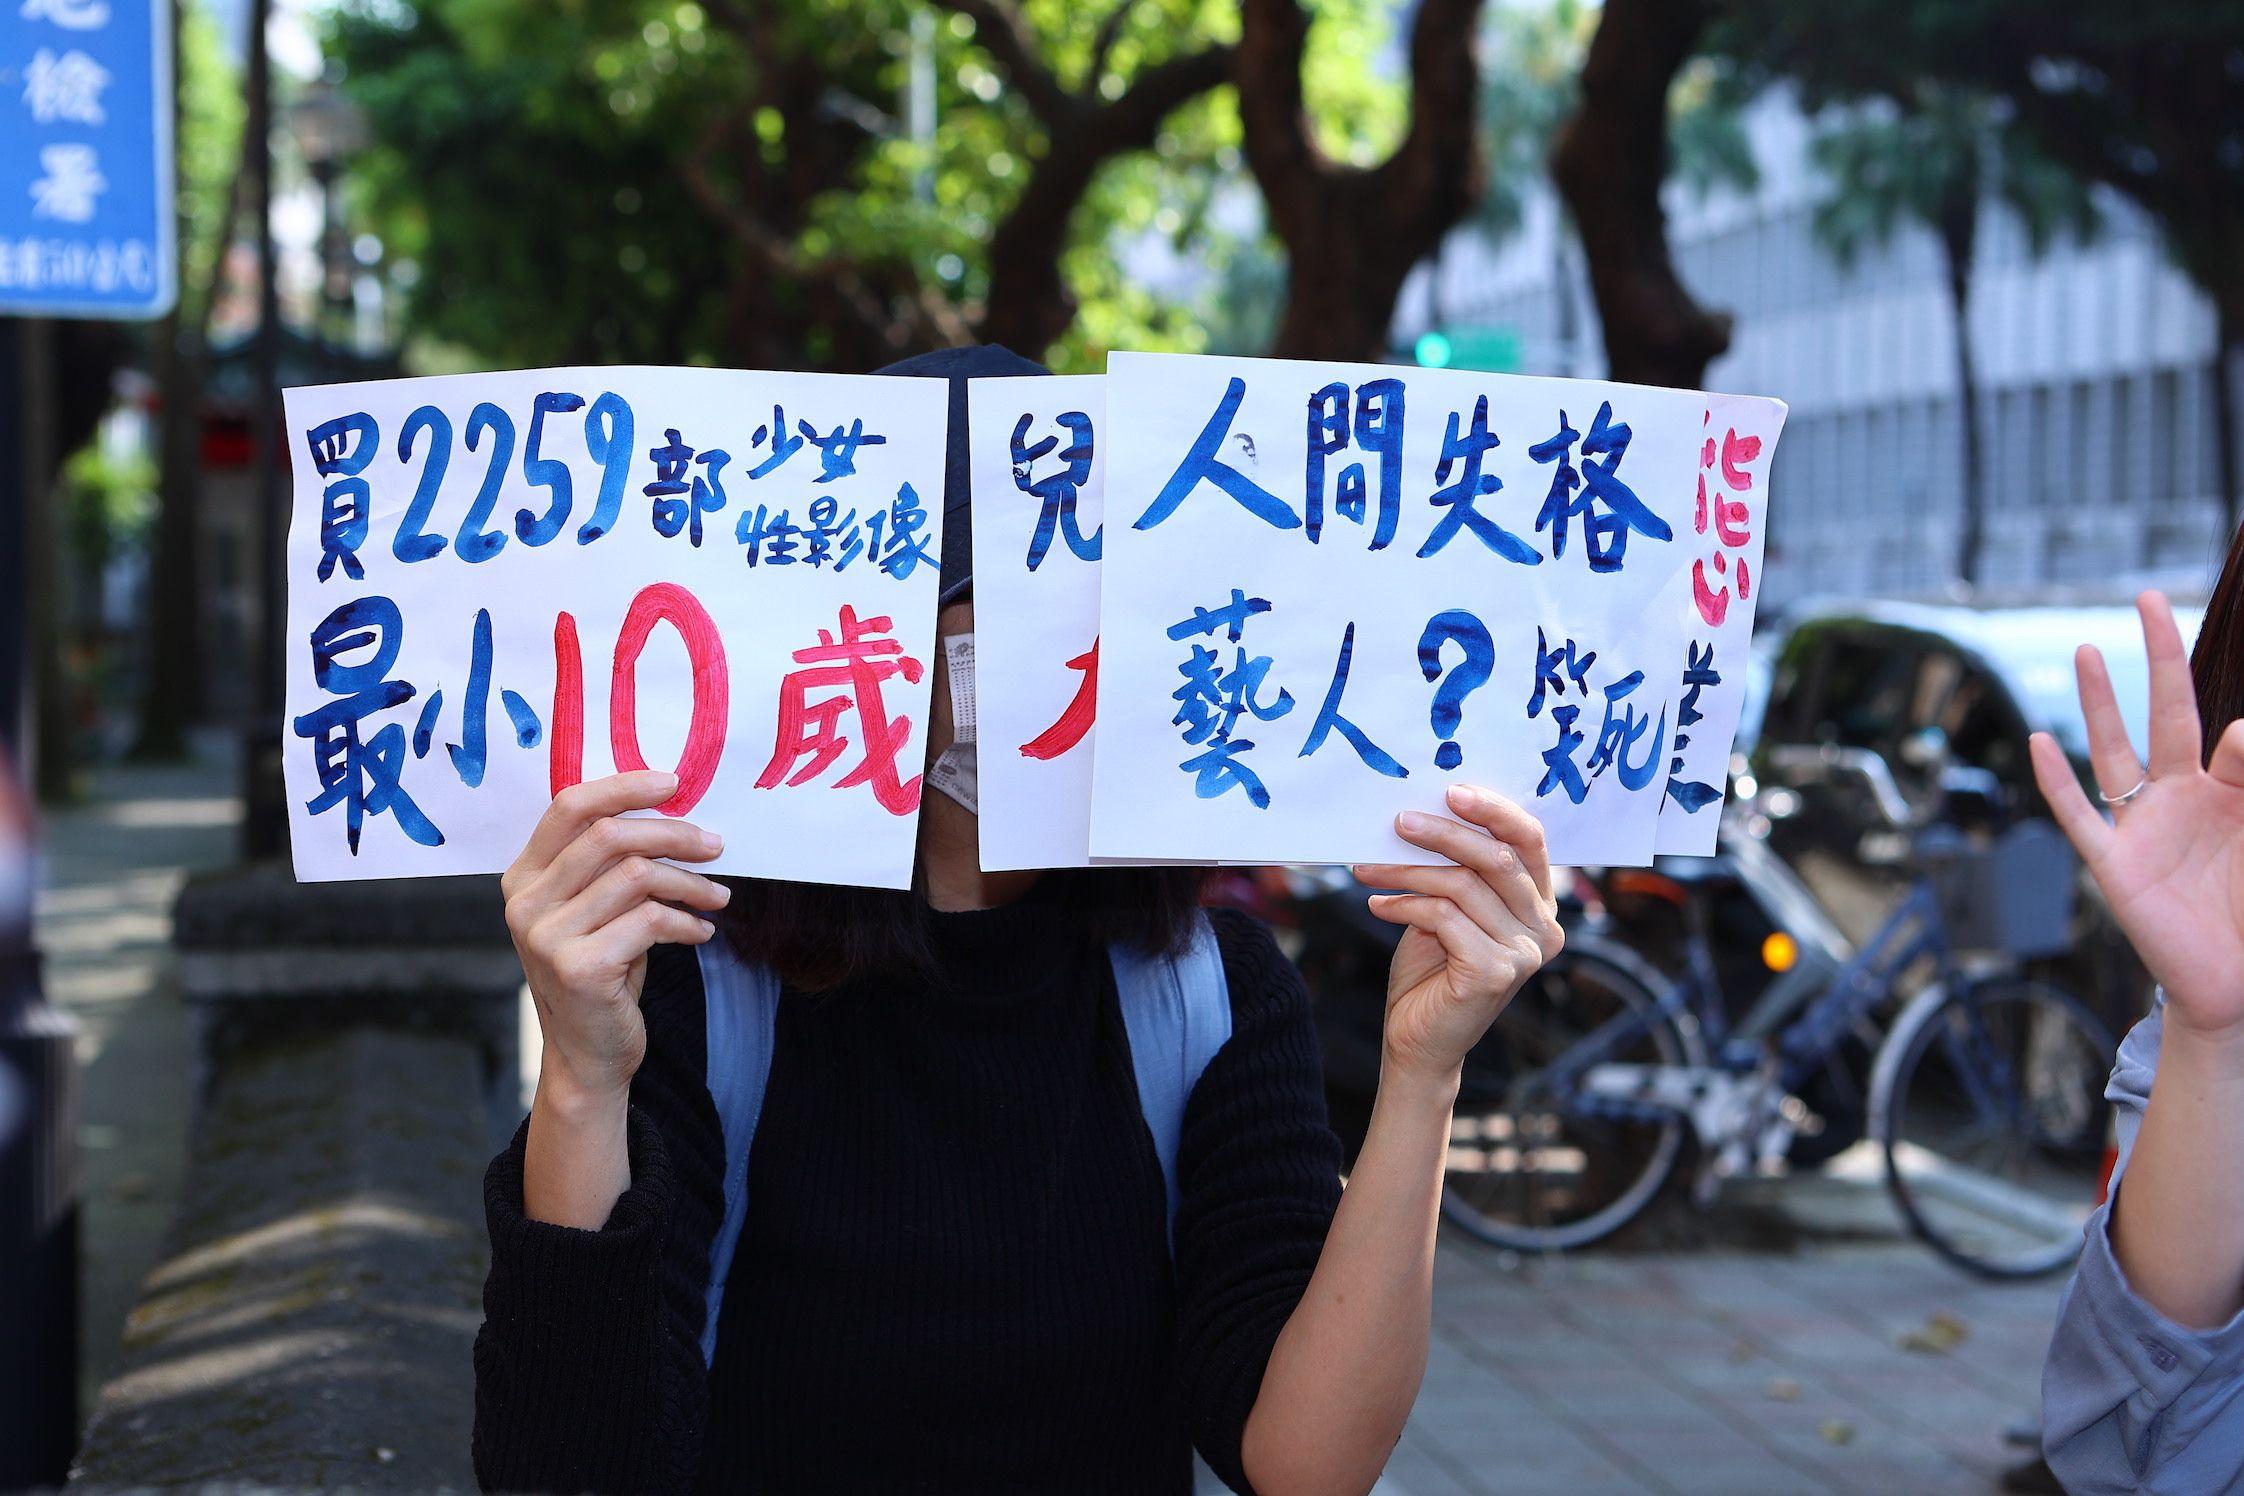 檢署
買2259部少女
性影像
最小10歲
兒
人間失格
藝人？笑死